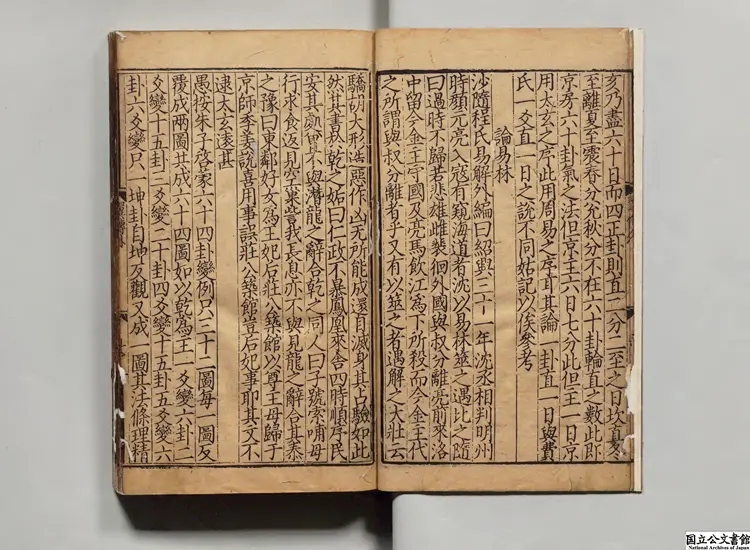 亥乃盡六十日而四正卦則直二分二至之日坎直冬
至離夏至震春分兊秋分不在六十卦輪直之數此即
京房六十卦氣之法但京主六日七分此但主一日京
用太玄之序此用周易之序耳其論一卦直一日與費
氏一爻直一日之說不同姑記以俟參考
論易林
沙隨程氏易解外編曰紹興三十一年沈丞相判明州
時顔元亮入寇有窺海道者沈以易林筮之遇比之隨
曰過時不歸若悲雄雌裴徊外國與叔分離亮前來洛
中留今金主字國及亮馬飲江爲下所殺而今金主代
之所謂與叔分離者乎又有以筮之者遇解之大壯云
驕胡大形造惡作凶无所能成還自滅身其占驗如此
然其書於乾之姤曰仁政不暴鳳凰來舍四時順序民
安其處曾不與潛龍之辭合乾之同人曰子號索哺母
行求食返見空巢訾我長息亦不與見龍之辭合其泰
之豫曰東鄰好女爲王妃后莊公築館以尊王母歸于
京師季姜說喜用事誤莊公築館豈后妃事耶其文不
逮太玄遠甚
愚按朱子啓蒙六十四卦變例只三十二圖每 圖反
覆成兩圖共成六十四圖如以乾爲主一爻變六卦二
爻變十五卦三爻變二十卦四爻變十五卦五爻變六
卦六爻變只 坤卦自坤反觀又成 圖其法條理精
国立公文書館
National Archives of Japan